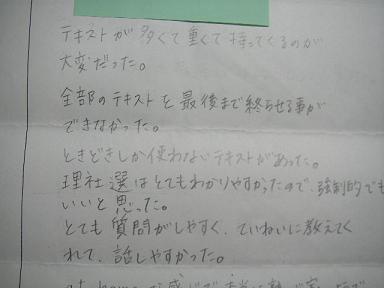 テキストが多くて重くて持ってくるのが
大変だった。
全部のテキストを最後まで終らせる事が
できなかった。
ときどきしか使わないテキストがあった。
理社選はとてもわかりやすかったので、強制的でも
いいと思った。
とても質問がしやすく、ていねいに教えてく
れて、話しやすかった。
at home